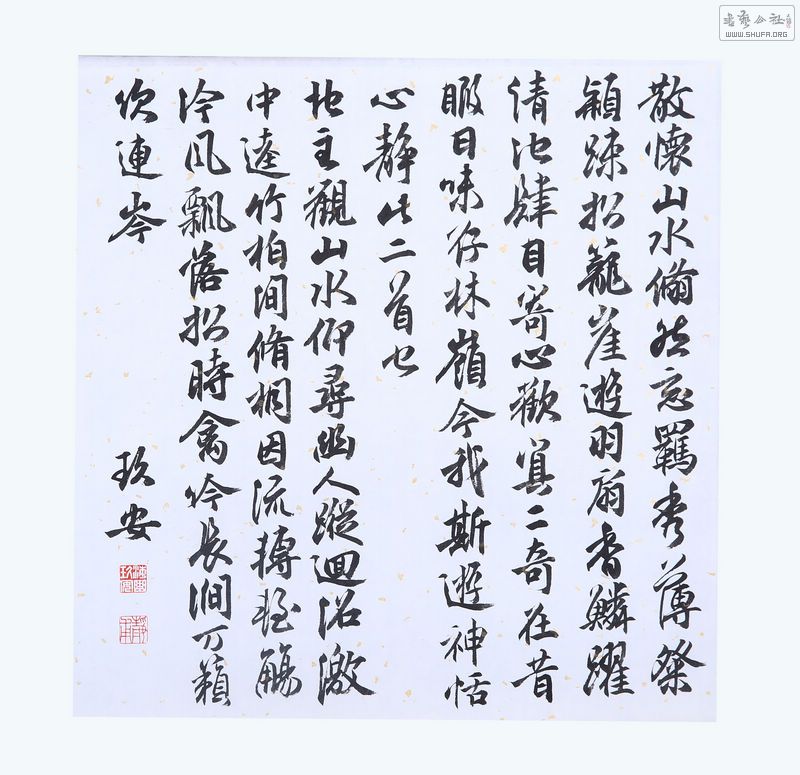 散懷山水翛然忘羈秀薄粲
穎踈松籠崖遊羽扇霄鱗躍
清池肆目寄心歡冥二奇在昔
暇日味存林嶺今我斯遊神恬
心靜此二首也
地主觀山水仰尋幽人蹤迴沼激
中逵竹柏間脩桐因流轉輕觴
冷風飄落松時禽吟長澗万籟
吹連岑
玖安
書藝公社
WWW.SHUFA.ORG